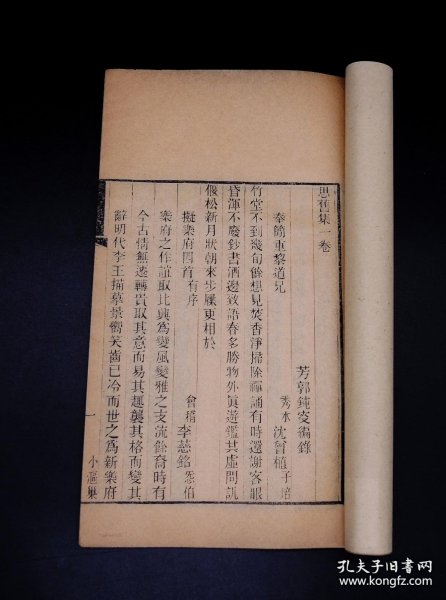 思舊集一卷
芳郭鈍叟編錄
奉簡重黎道兄
秀水 沈曾植 子培
竹堂不到幾旬餘想見焚香淨掃除禪誦有時還謝客眼
昏渾不廢鈔書酒邊致語春多勝物外眞遊鑑其虛問訊
偃松新月狀朝來步屧更相於
擬樂府四首有序
會稽 李慈銘 㤅伯
樂府之作誼取比興為變風變雅之支流餘裔時有
今古情無遠轉貴取其意而易其題襲其格而變其
辭明代李王描摹景嚮笑齒已冷而世之為新樂府
一
小漚巢
孔夫子旧书网
www.kongfz.com